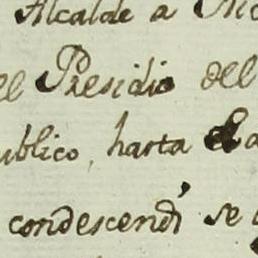 Alcalde a
el Presidio del
ublico, harta
condescendi se